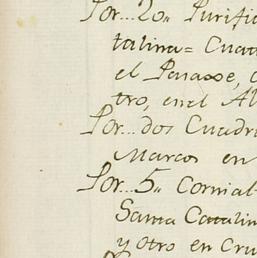 Por... 20,, Purific
talina= Cuat
el Parage, 
tro, en el Al
Por... dos Cuadr
Marcos en
Por... 5,, Cornial
Santa Catalin
y otro en Cru